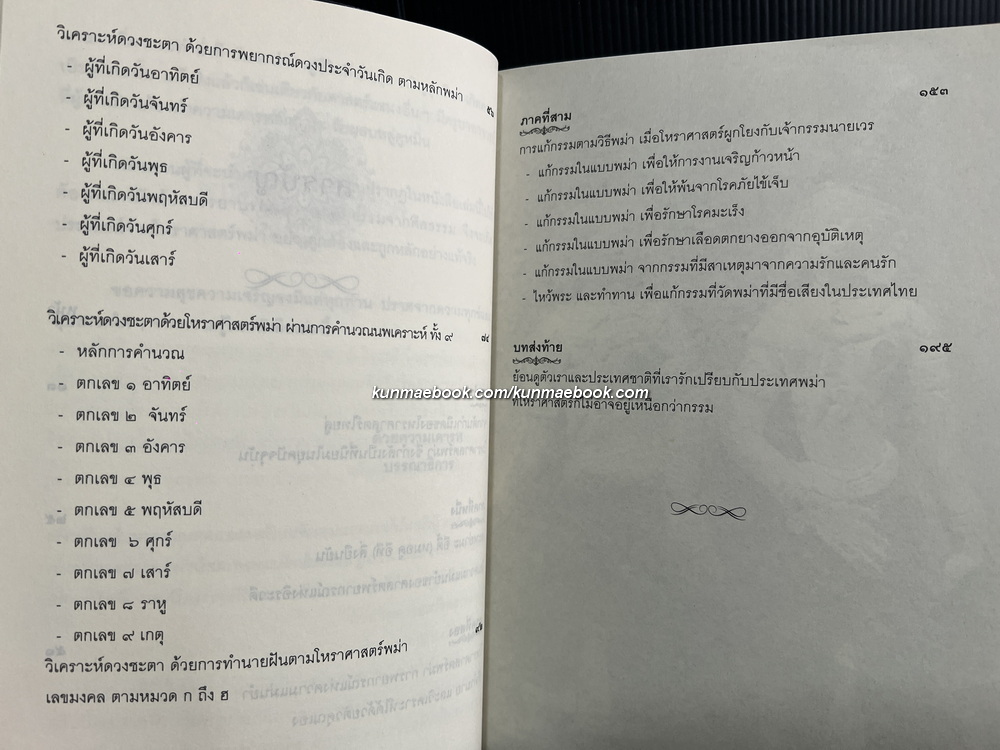 วิเคราะห์ดวงชะตา ด้วยการพยากรณ์ดวงประจำวันเกิด ตามหลักพม่า
- ผู้ที่เกิดวันอาทิตย์
- ผู้ที่เกิดวันจันทร์
- ผู้ที่เกิดวันอังคาร
- ผู้ที่เกิดวันพุธ
- ผู้ที่เกิดวันพฤหัสบดี
- ผู้ที่เกิดวันศุกร์
- ผู้ที่เกิดวันเสาร์
วิเคราะห์ดวงชะตาด้วยโหราศาสตร์พม่า ผ่านการคำนวณนพเคราะห์ ทั้ง ๙ ๘๔
- หลักการคำนวณ
- ตกเลข ๑ อาทิตย์
- ตกเลข ๒ จันทร์
- ตกเลข ๓ อังคาร
- ตกเลข ๔ พุธ
- ตกเลข ๕ พฤหัสบดี
- ตกเลข ๖ ศุกร์
- ตกเลข ๗ เสาร์
- ตกเลข ๘ ราหู
- ตกเลข ๙ เกตุ
วิเคราะห์ดวงชะตา ด้วยการทำนายฝันตามโหราศาสตร์พม่า
เลขมงคล ตามหมวด ก ถึง ฮ
ภาคที่สาม ๑๕๓
การแก้กรรมตามวิธีพม่า เมื่อโหราศาสตร์ผูกโยงกับเจ้ากรรมนายเวร
- แก้กรรมในแบบพม่า เพื่อให้การงานเจริญก้าวหน้า
- แก้กรรมในแบบพม่า เพื่อให้พ้นจากโรคภัยไข้เจ็บ
- แก้กรรมในแบบพม่า เพื่อรักษาโรคมะเร็ง
- แก้กรรมในแบบพม่า เพื่อรักษาเลือดตกยางออกจากอุบัติเหตุ
- แก้กรรมในแบบพม่า จากกรรมที่มีสาเหตุมาจากความรักและคนรัก
- ไหว้พระ และทำทาน เพื่อแก้กรรมที่วัดพม่าที่มีชื่อเสียงในประเทศไทย
บทส่งท้าย ๑๙๕
ย้อนดูตัวเราและประเทศชาติที่เรารักเปรียบกับประเทศพม่า
ที่โหราศาสตร์ก็ไม่อาจอยู่เหนือกว่ากรรม
kunmaebook.com/kunmaebook.com